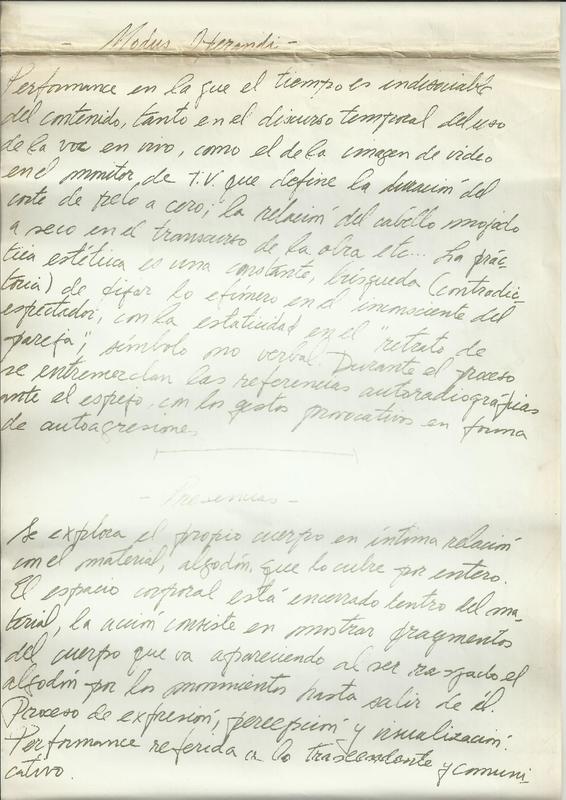 - Modus Operandi -
Performance en la que el tiempo es indisociable
del contenido, tanto en el discurso temporal del uso
de la voz en vivo, como el de la imagen de video
en el monitor de T.V. que define la duración del
corte de pelo a cero; la relación del cabello mojado
a seco en el transcurso de la obra etc... La prác-
tica estética es una constante, búsqueda (contradic-
toria) de fijar lo efímero en el inconsciente del
espectador, con la estaticidad en el "retrato de
pareja", símbolo no verbal. Durante el proceso
se entremezclan las referencias autoradiográficas
ante el espejo, con los gestos provocativos en forma
de autoagresiones
- Presencias -
Se explora el propio cuerpo en íntima relación
con el material, algodón, que lo cubre por entero.
El espacio corporal está encerrado dentro del ma-
terial, la acción consiste en mostrar fragmentos
del cuerpo que va apareciendo al ser rasgado el
algodón por los movimientos hasta salir de él.
Proceso de expresión, percepción y visualización.
Performance referida a lo trascendente y comuni-
cativo.